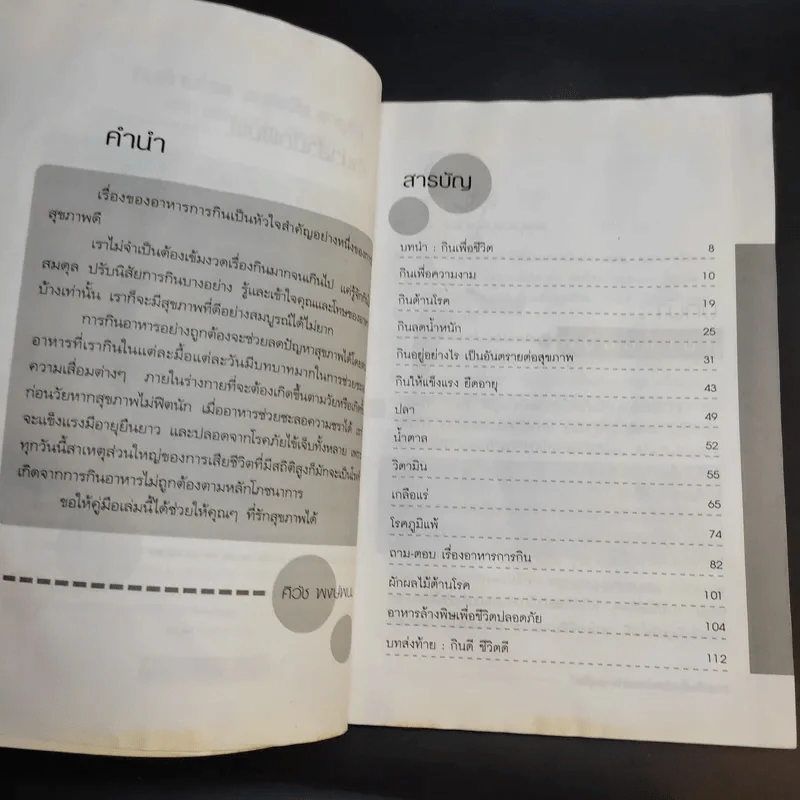 คำนำ
เรื่องของอาหารการกินเป็นหัวใจสำคัญอย่างหนึ่งของการ
สุขภาพดี
เราไม่จำเป็นต้องเข้มงวดเรื่องกินมากจนเกินไป แค่รู้จัก
สมดุล ปรับนิสัยการกินบางอย่าง รู้และเข้าใจคุณและโทษของ
บ้างเท่านั้น เราก็จะมีสุขภาพที่ดีอย่างสมบูรณ์ได้ไม่ยาก
การกินอาหารอย่างถูกต้องจะช่วยลดปัญหาสุขภาพได้
อาหารที่เรากินในแต่ละมื้อแต่ละวันมีบทบาทมากในการช่วย
ความเสื่อมต่างๆ ภายในร่างกายที่จะต้องเกิดขึ้นตามวัยหรือเกิด
ก่อนวัยหากสุขภาพไม่ฟิตนัก เมื่ออาหารช่วยชะลอความชราได้
จะแข็งแรงมีอายุยืนยาว และปลอดจากโรคภัยไข้เจ็บทั้งหลาย
ทุกวันนี้สาเหตุส่วนใหญ่ของการเสียชีวิตที่มีสถิติสูงก็มักจะเป็น
เกิดจากการกินอาหารไม่ถูกต้องตามหลักโภชนาการ
ขอให้คู่มือเล่มนี้ได้ช่วยให้คุณๆ ที่รักสุขภาพได้
ศิวัช
สารบัญ
บทนำ : กินเพื่อชีวิต 8
กินเพื่อความงาม 10
กินต้านโรค 19
กินลดน้ำหนัก 25
กินอยู่อย่างไร เป็นอันตรายต่อสุขภาพ 31
กินให้แข็งแรง ยืดอายุ 43
ปลา 49
น้ำตาล 52
วิตามิน 55
เกลือแร่ 65
โรคภูมิแพ้ 74
ถาม-ตอบ เรื่องอาหารการกิน 82
ผักผลไม้ต้านโรค 101
อาหารล้างพิษเพื่อชีวิตปลอดภัย 104
บทส่งท้าย : กินดี ชีวิตดี 112